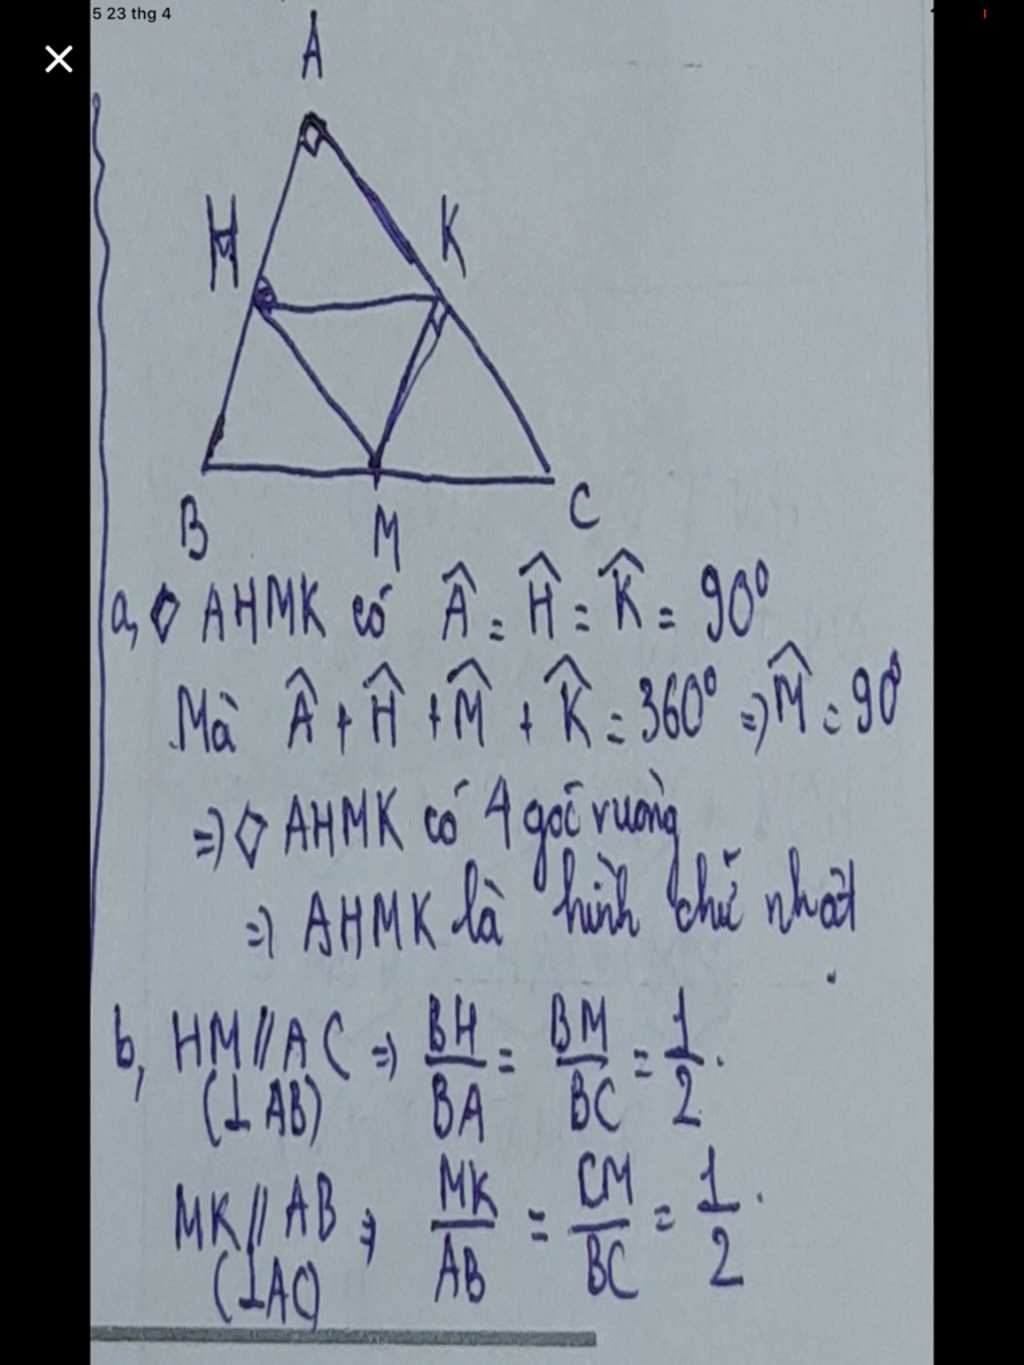 5 23 thg 4
A
H
K
B
M
C
a, ◇ AHMK có Â = Ĥ = K̂ = 90°
Mà Â + Ĥ + M̂ + K̂ = 360° => M̂ = 90°
=> ◇ AHMK có 4 góc vuông
=> AHMK là hình chữ nhật.
b, HM // AC => BH/BA = BM/BC = 1/2.
(⊥ AB)
MK // AB => MK/AB = CM/BC = 1/2.
(⊥ AC)